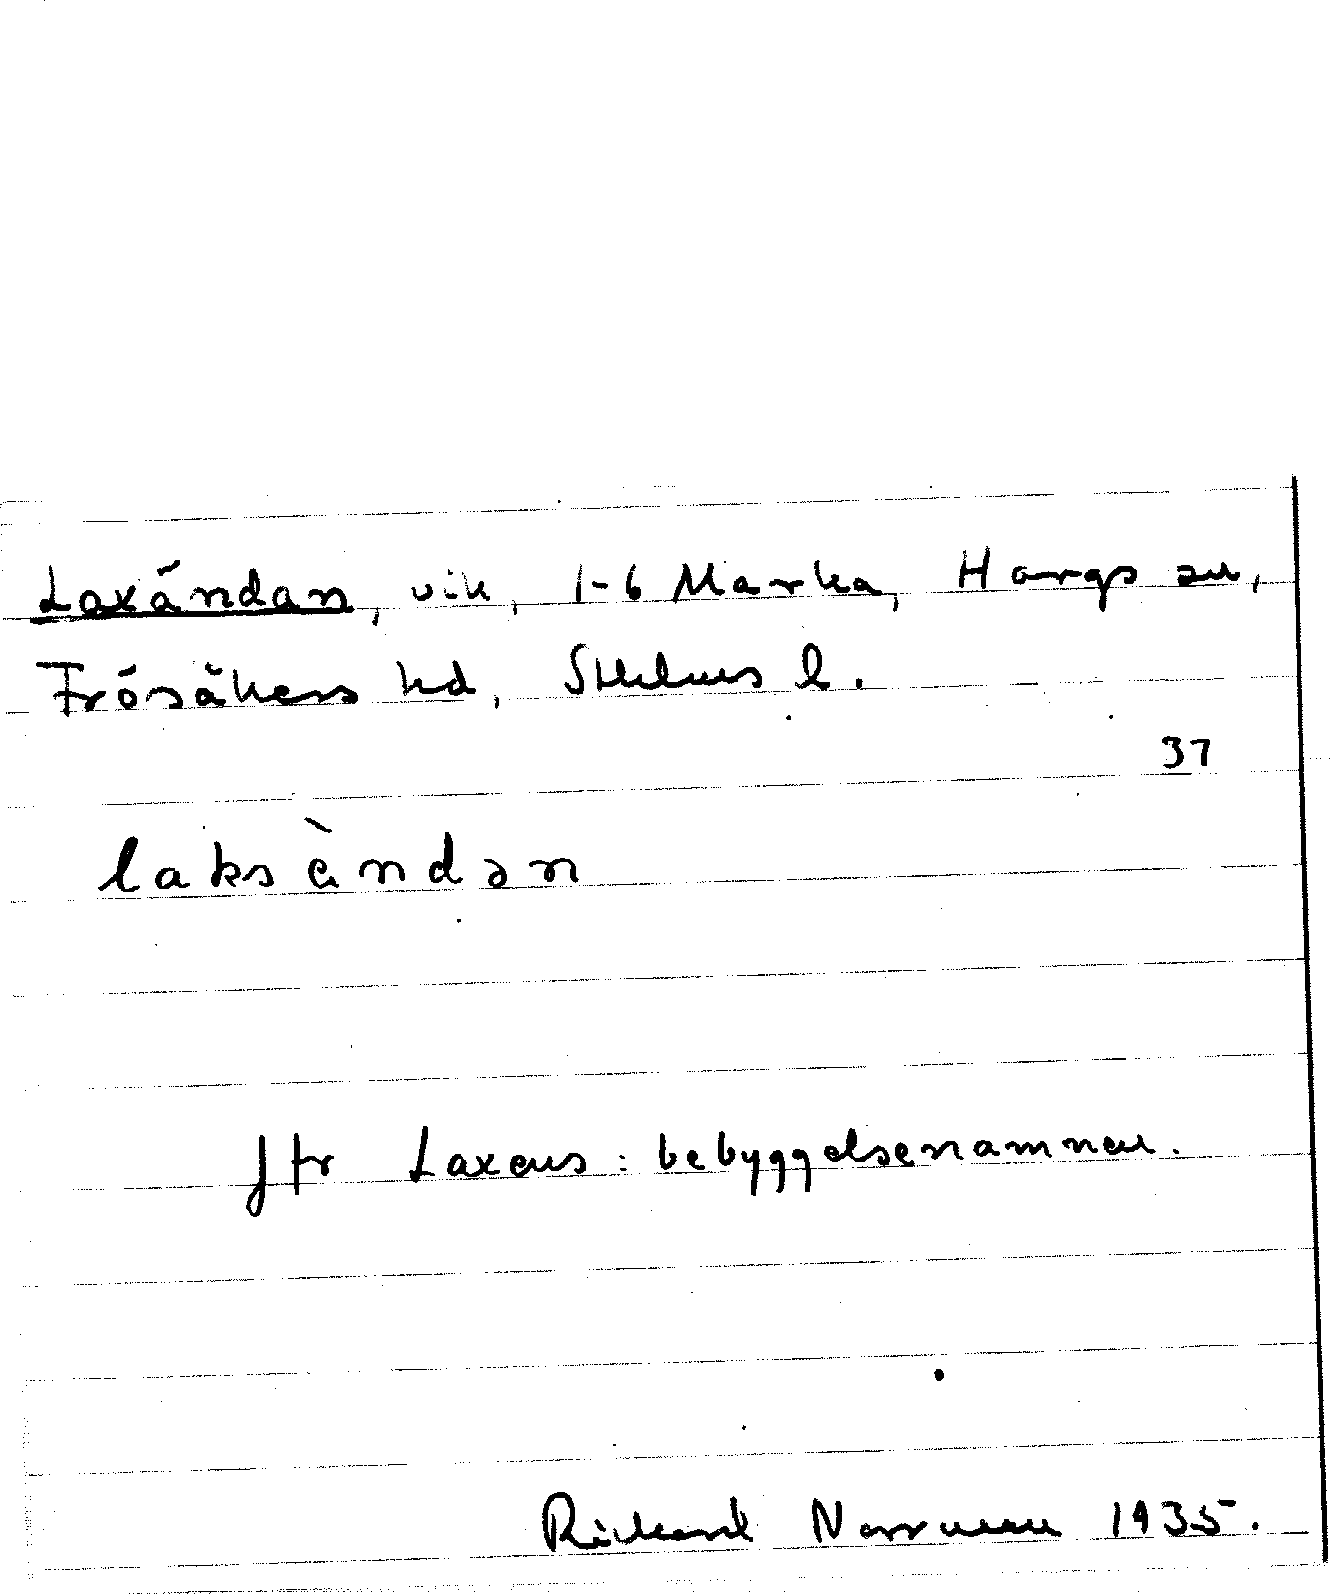 Laxändan, vik, 1-6 Marka, Hargs sn,
Frösåkers hd, Sthlms l.
37
laksàndən
Jfr Laxens: bebyggelsenamnen.
Rickard Norrman 1935.